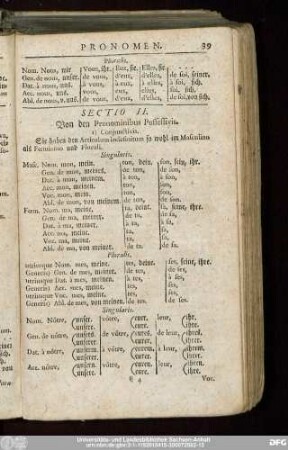 PRONOMEN. 39
Pluralis.
Nom. Nous, wir Vous, ihr, Eux, sie. Elles, sie.
Gen. de nous, unser. de vous, d'eux, d'elles, de soi, seiner.
Dat. à nous, uns. à vous, à eux, à elles, à soi, sich.
Acc. nous, uns. vous, eux, elles, soi, sich.
Abl. de nous, v. uns. de vous, d'eux, d'elles, de soi, von sich.
SECTIO II.
Von den Pronominibus Possessivis.
1) Conjunctivis.
Sie haben den Articulum indefinitum so wohl im Masculino
als Fœminino und Plurali.
Singularis.
Masc. Nom. mon, mein. ton, dein. son, sein, ihr.
Gen. de mon, meines. de ton, de son,
Dat. à mon, meinem. à ton, à son,
Acc. mon, meinen. ton, son,
Voc. mon, mein.
Abl. de mon, von meinem. de ton, de son.
Fœm. Nom. ma, meine. ta, deine. sa, seine, ihre.
Gen. de ma, meiner. de ta, de sa,
Dat. à ma, meiner. à ta, à sa,
Acc. ma, meine. ta, sa,
Voc. ma, meine.
Abl. de ma, von meiner. de ta. de sa.
Pluralis.
utriusque Nom. mes, meine. tes, deine. ses, seine, ihre.
Generis) Gen. de mes, meiner. de tes, de ses,
utriusque Dat. à mes, meinen. à tes, à ses,
Generis) Acc. mes, meine. tes, ses,
utriusque Voc. mes, meine.
Generis) Abl. de mes, von meinen. de tes. de ses.
Singularis.
Nom. Nôtre, unser. vôtre, eurer. leur, ihr.
unsere. eure. ihre.
Gen. de nôtre, unsers. de vôtre, eures. de leur, ihres.
unserer. eurer. ihrer.
Dat. à nôtre, unserm. à vôtre, eurem. à leur, ihrem.
unserer. eurer. ihrer.
Acc. nôtre, unsern. vôtre, euren. leur, ihren.
unsere. eure. ihre.
Voc.
Universitäts- und Landesbibliothek Sachsen-Anhalt
DFG